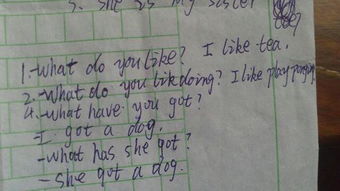 3. She is my sister
1. -What do you like? I like tea.
2. -What do you lik doing? I like play pingpong
4. -what have you got?
-I got a dog.
-what has she got?
-She got a dog.